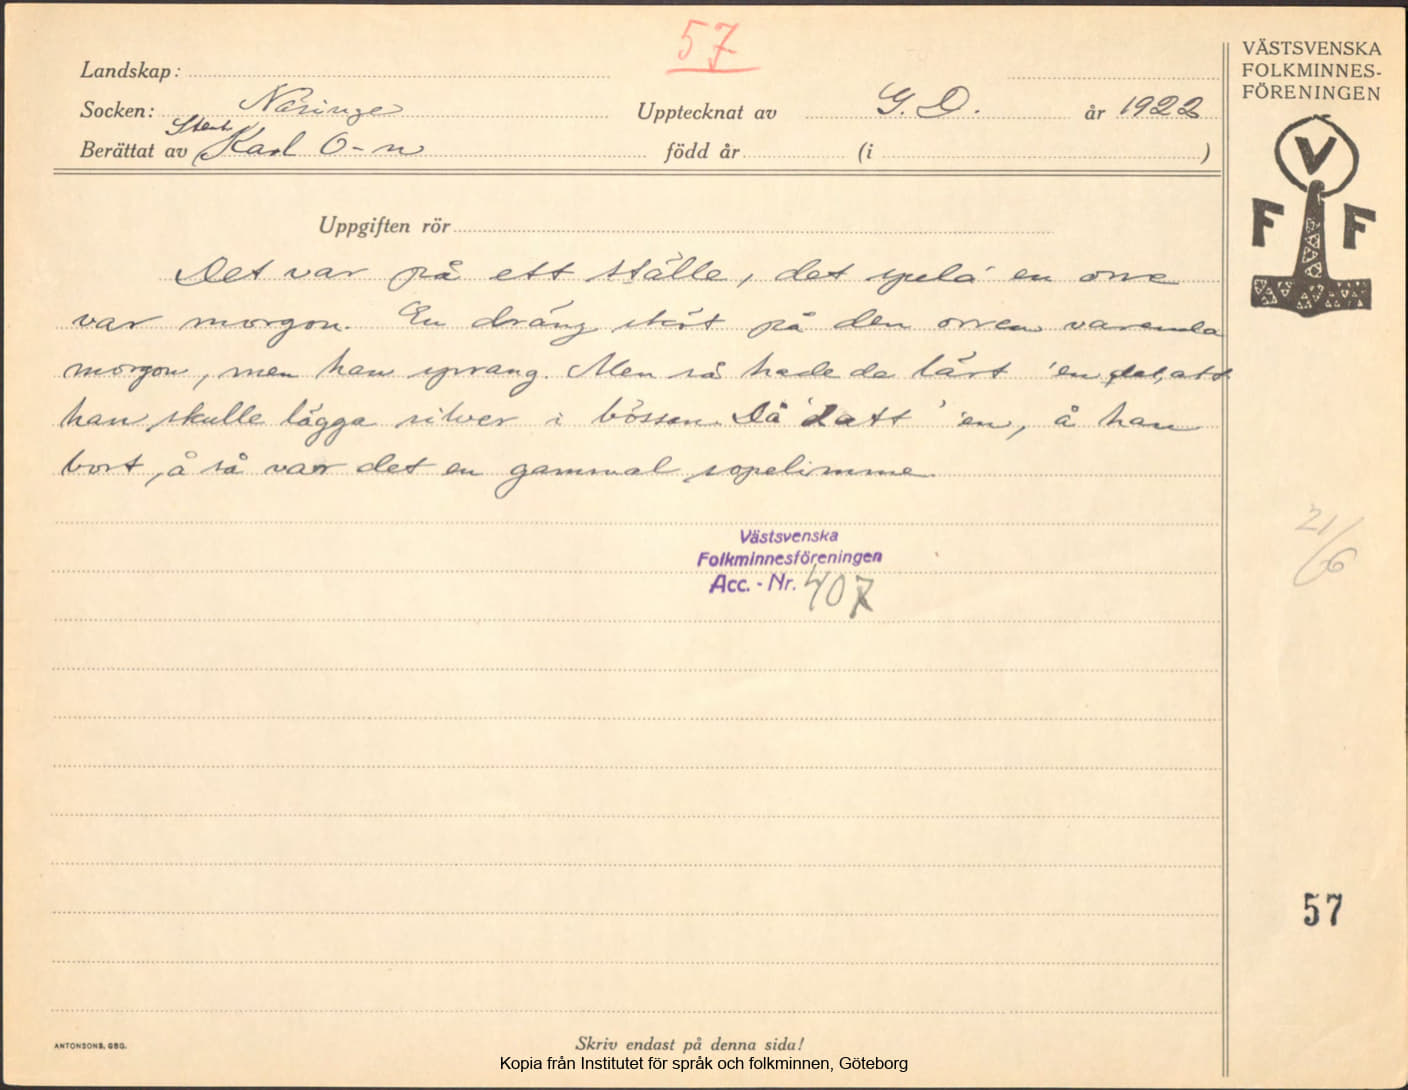 57
VÄSTSVENSKA
FOLKMINNES-
FÖRENINGEN
Landskap:
Socken: Näsinge
Upptecknat av G. D. år 1922
Berättat av Karl O-n född år (i )
V
F F
Uppgiften rör
Det var på ett ställe, det spela' en orre
var morgon. En dräng sköt på den orren varenda
morgon, men han sprang. Men så hade de lärt 'en det, att
han skulle lägga silver i bössan. Då datt 'en, å han
bort, å så var det en gammal sopelimme.
Västsvenska
Folkminnesföreningen
Acc. - Nr. 407
21/6
57
ANTONSONS, GBG.
Skriv endast på denna sida!
Kopia från Institutet för språk och folkminnen, Göteborg